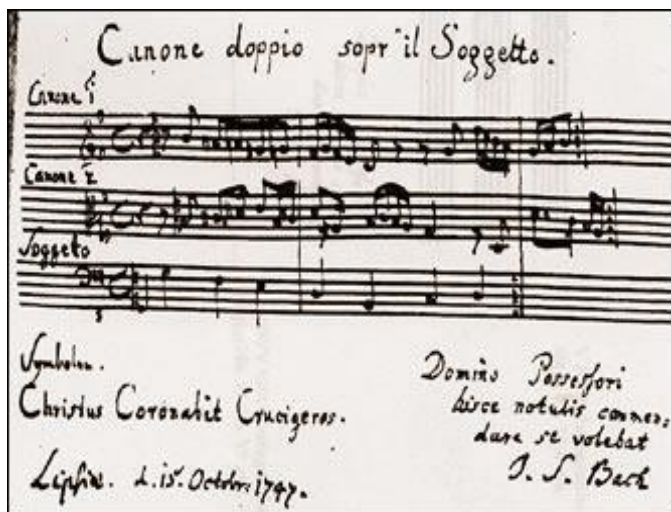 Canone doppio sopr' il Soggetto.
Canone 1
Canone 2
Soggetto
Symbolum.
Christus Coronabit Crucigeros.
Lipsiae d. 15. Octobr: 1747.
Domino Possessori
hisce notulis commen-
dare se volebat
J. S. Bach